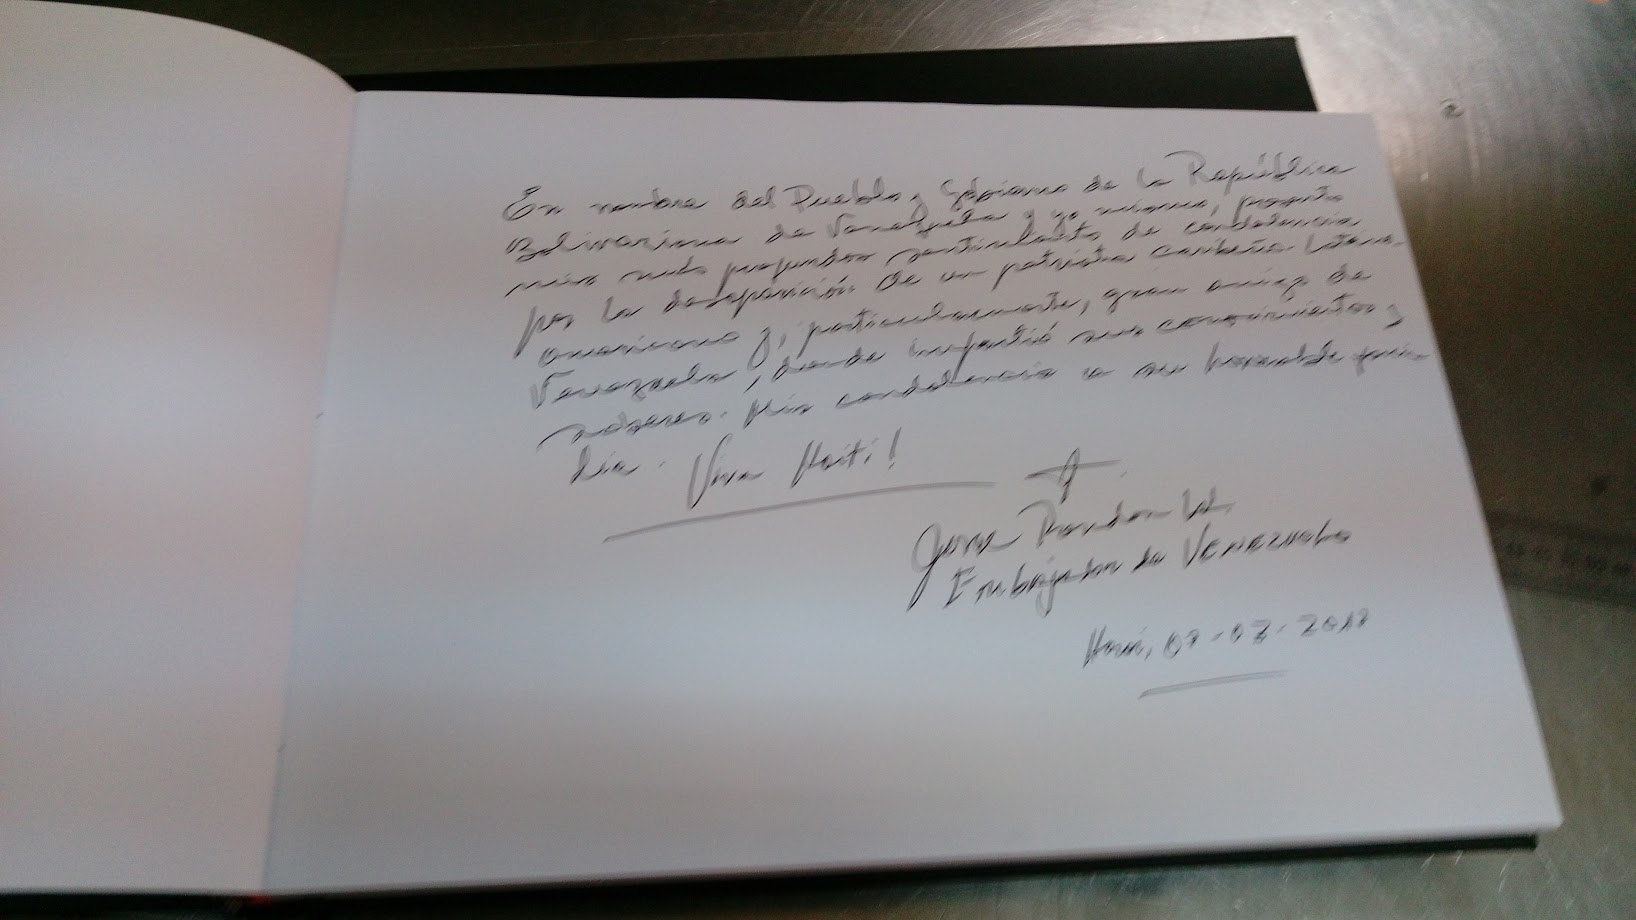 En nombre del Pueblo y Gobierno de la República
Bolivariana de Venezuela y yo mismo, presento
mis más profundos sentimientos de condolencia
por la desaparición de un patriota caribeño-latino-
americano y, particularmente, gran amigo de
Venezuela, donde impartió sus conocimientos y
saberes. Mis condolencias a su honorable fami-
lia. Viva Haití!
Embajador de Venezuela
Haití, 07-03-2017